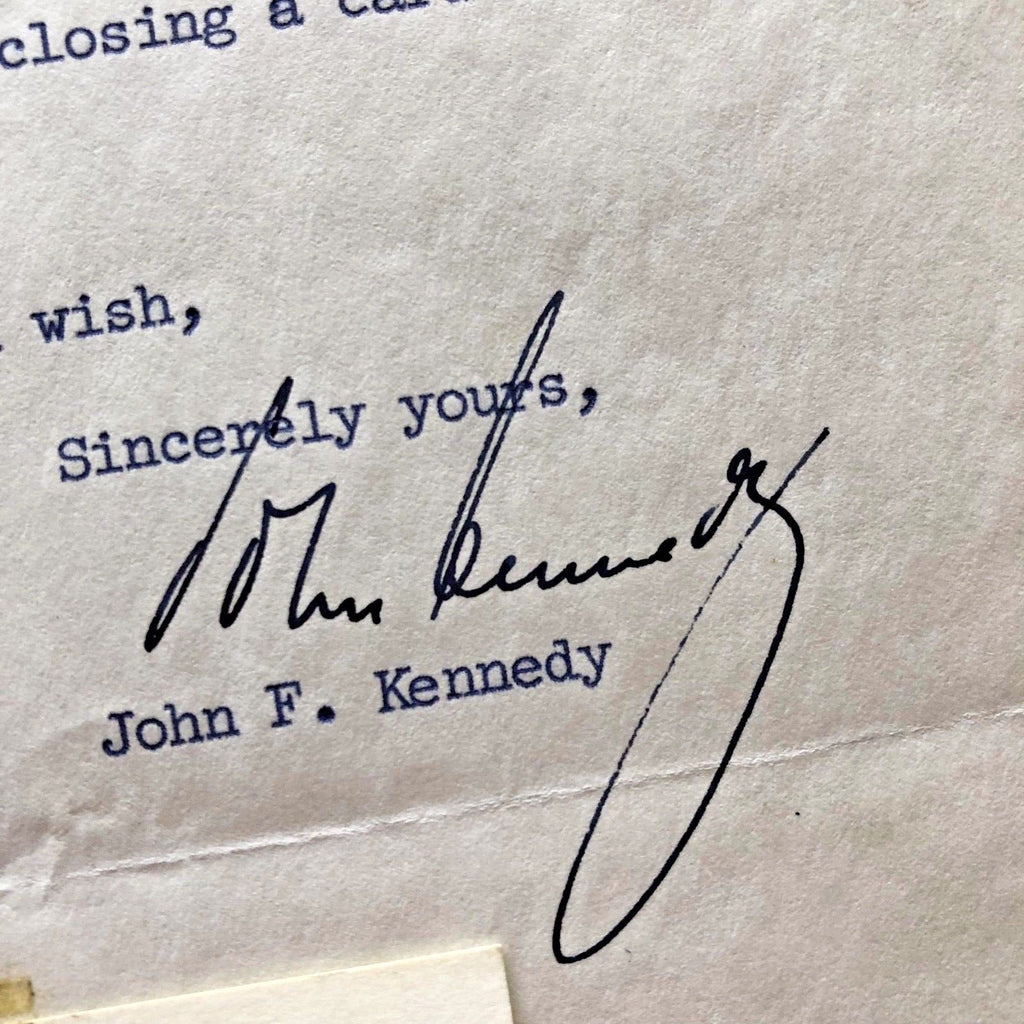 closing a card
wish,
Sincerely yours,
John Kennedy
John F. Kennedy